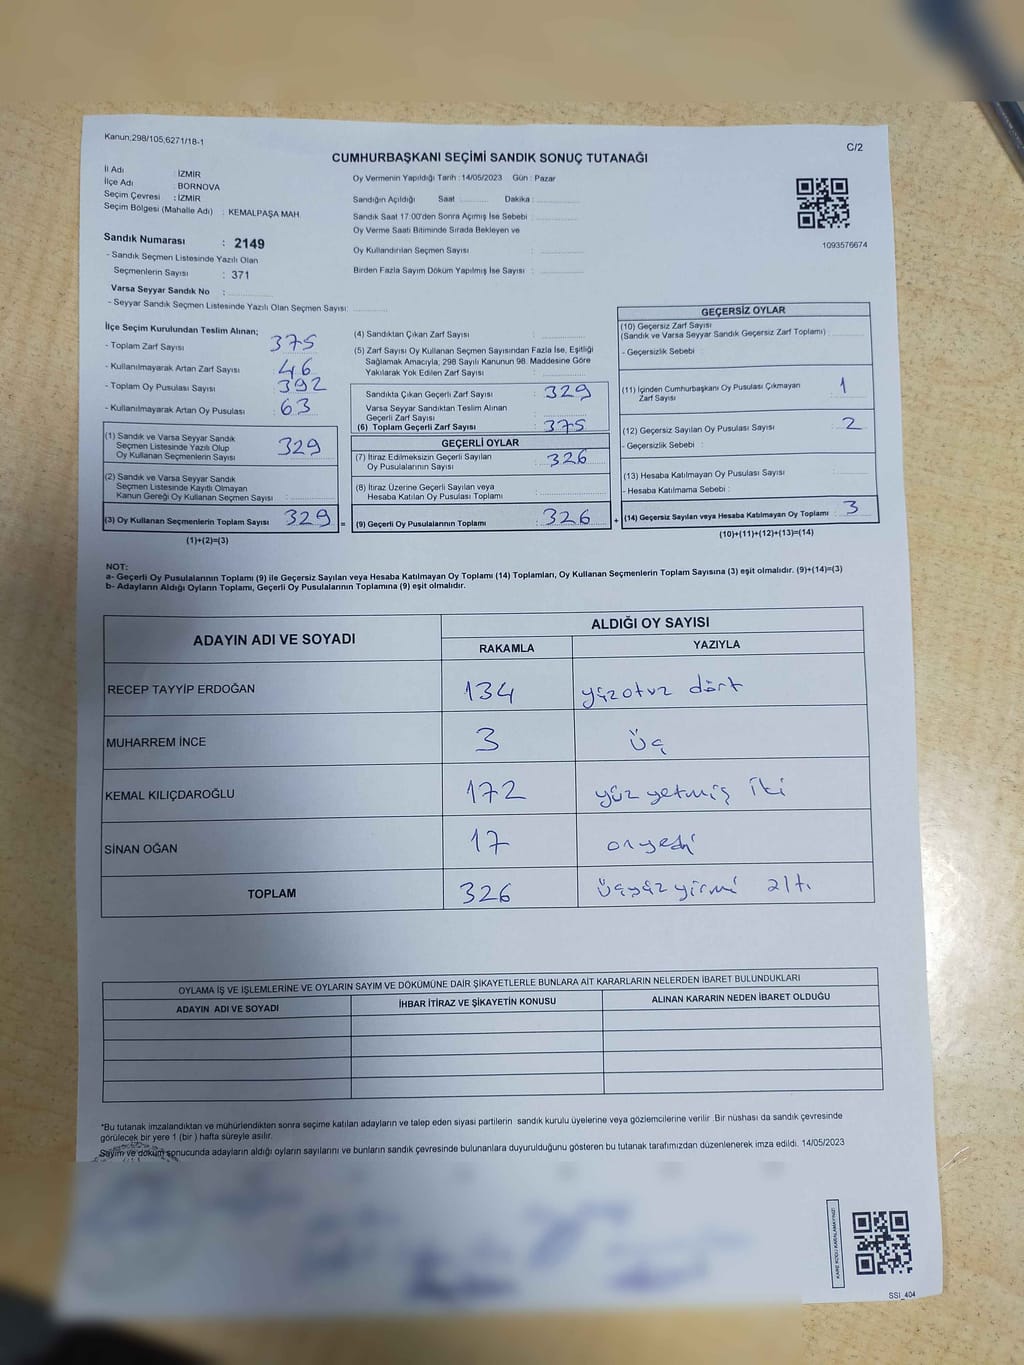 Kanun;298/105,6271/18-1
C/2
CUMHURBAŞKANI SEÇİMİ SANDIK SONUÇ TUTANAĞI
İl Adı : İZMİR
İlçe Adı : BORNOVA
Seçim Çevresi : İZMİR
Seçim Bölgesi (Mahalle Adı) : KEMALPAŞA MAH.
Sandık Numarası : 2149
- Sandık Seçmen Listesinde Yazılı Olan
Seçmenlerin Sayısı : 371
Varsa Seyyar Sandık No :
- Seyyar Sandık Seçmen Listesinde Yazılı Olan Seçmen Sayısı:
Oy Vermenin Yapıldığı Tarih : 14/05/2023 Gün : Pazar
Sandığın Açıldığı Saat Dakika
Sandık Saat 17:00'den Sonra Açımış İse Sebebi :
Oy Verme Saati Bitiminde Sırada Bekleyen ve
Oy Kullandırılan Seçmen Sayısı :
Birden Fazla Sayım Döküm Yapılmış İse Sayısı :
1093576674
İlçe Seçim Kurulundan Teslim Alınan;
- Toplam Zarf Sayısı : 375
- Kullanılmayarak Artan Zarf Sayısı : 46
- Toplam Oy Pusulası Sayısı : 392
- Kullanılmayarak Artan Oy Pusulası : 63
(1) Sandık ve Varsa Seyyar Sandık
Seçmen Listesinde Yazılı Olup
Oy Kullanan Seçmenlerin Sayısı : 329
(2) Sandık ve Varsa Seyyar Sandık
Seçmen Listesinde Kayıtlı Olmayan
Kanun Gereği Oy Kullanan Seçmen Sayısı :
(3) Oy Kullanan Seçmenlerin Toplam Sayısı : 329 =
(1)+(2)=(3)
(4) Sandıktan Çıkan Zarf Sayısı :
(5) Zarf Sayısı Oy Kullanan Seçmen Sayısından Fazla İse, Eşitliği
Sağlamak Amacıyla, 298 Sayılı Kanunun 98. Maddesine Göre
Yakılarak Yok Edilen Zarf Sayısı :
Sandıkta Çıkan Geçerli Zarf Sayısı : 329
Varsa Seyyar Sandıktan Teslim Alınan
Geçerli Zarf Sayısı :
(6) Toplam Geçerli Zarf Sayısı : 375
GEÇERLİ OYLAR
(7) İtiraz Edilmeksizin Geçerli Sayılan
Oy Pusulalarının Sayısı : 326
(8) İtiraz Üzerine Geçerli Sayılan veya
Hesaba Katılan Oy Pusulası Toplamı :
(9) Geçerli Oy Pusulalarının Toplamı : 326 +
GEÇERSİZ OYLAR
(10) Geçersiz Zarf Sayısı
(Sandık ve Varsa Seyyar Sandık Geçersiz Zarf Toplamı) :
- Geçersizlik Sebebi :
(11) İçinden Cumhurbaşkanı Oy Pusulası Çıkmayan
Zarf Sayısı : 1
(12) Geçersiz Sayılan Oy Pusulası Sayısı : 2
- Geçersizlik Sebebi :
(13) Hesaba Katılmayan Oy Pusulası Sayısı :
- Hesaba Katılmama Sebebi :
(14) Geçersiz Sayılan veya Hesaba Katılmayan Oy Toplamı : 3
(10)+(11)+(12)+(13)=(14)
NOT:
a- Geçerli Oy Pusulalarının Toplamı (9) ile Geçersiz Sayılan veya Hesaba Katılmayan Oy Toplamı (14) Toplamları, Oy Kullanan Seçmenlerin Toplam Sayısına (3) eşit olmalıdır. (9)+(14)=(3)
b- Adayların Aldığı Oyların Toplamı, Geçerli Oy Pusulalarının Toplamına (9) eşit olmalıdır.
ADAYIN ADI VE SOYADI
ALDIĞI OY SAYISI
RAKAMLA YAZIYLA
RECEP TAYYİP ERDOĞAN 134 yüzotuz dört
MUHARREM İNCE 3 üç
KEMAL KILIÇDAROĞLU 172 yüz yetmiş iki
SİNAN OĞAN 17 onyedi
TOPLAM 326 üçyüz yirmi altı
OYLAMA İŞ VE İŞLEMLERİNE VE OYLARIN SAYIM VE DÖKÜMÜNE DAİR ŞİKAYETLERLE BUNLARA AİT KARARLARIN NELERDEN İBARET BULUNDUKLARI
ADAYIN ADI VE SOYADI İHBAR İTİRAZ VE ŞİKAYETİN KONUSU ALINAN KARARIN NEDEN İBARET OLDUĞU
*Bu tutanak imzalandıktan ve mühürlendikten sonra seçime katılan adayların ve talep eden siyasi partilerin sandık kurulu üyelerine veya gözlemcilerine verilir .Bir nüshası da sandık çevresinde
görülecek bir yere 1 (bir ) hafta süreyle asılır.
Sayım ve döküm sonucunda adayların aldığı oyların sayılarını ve bunların sandık çevresinde bulunanlara duyurulduğunu gösteren bu tutanak tarafımızdan düzenlenerek imza edildi. 14/05/2023
KARE KODU KARALAMAYINIZ!
SSI_404